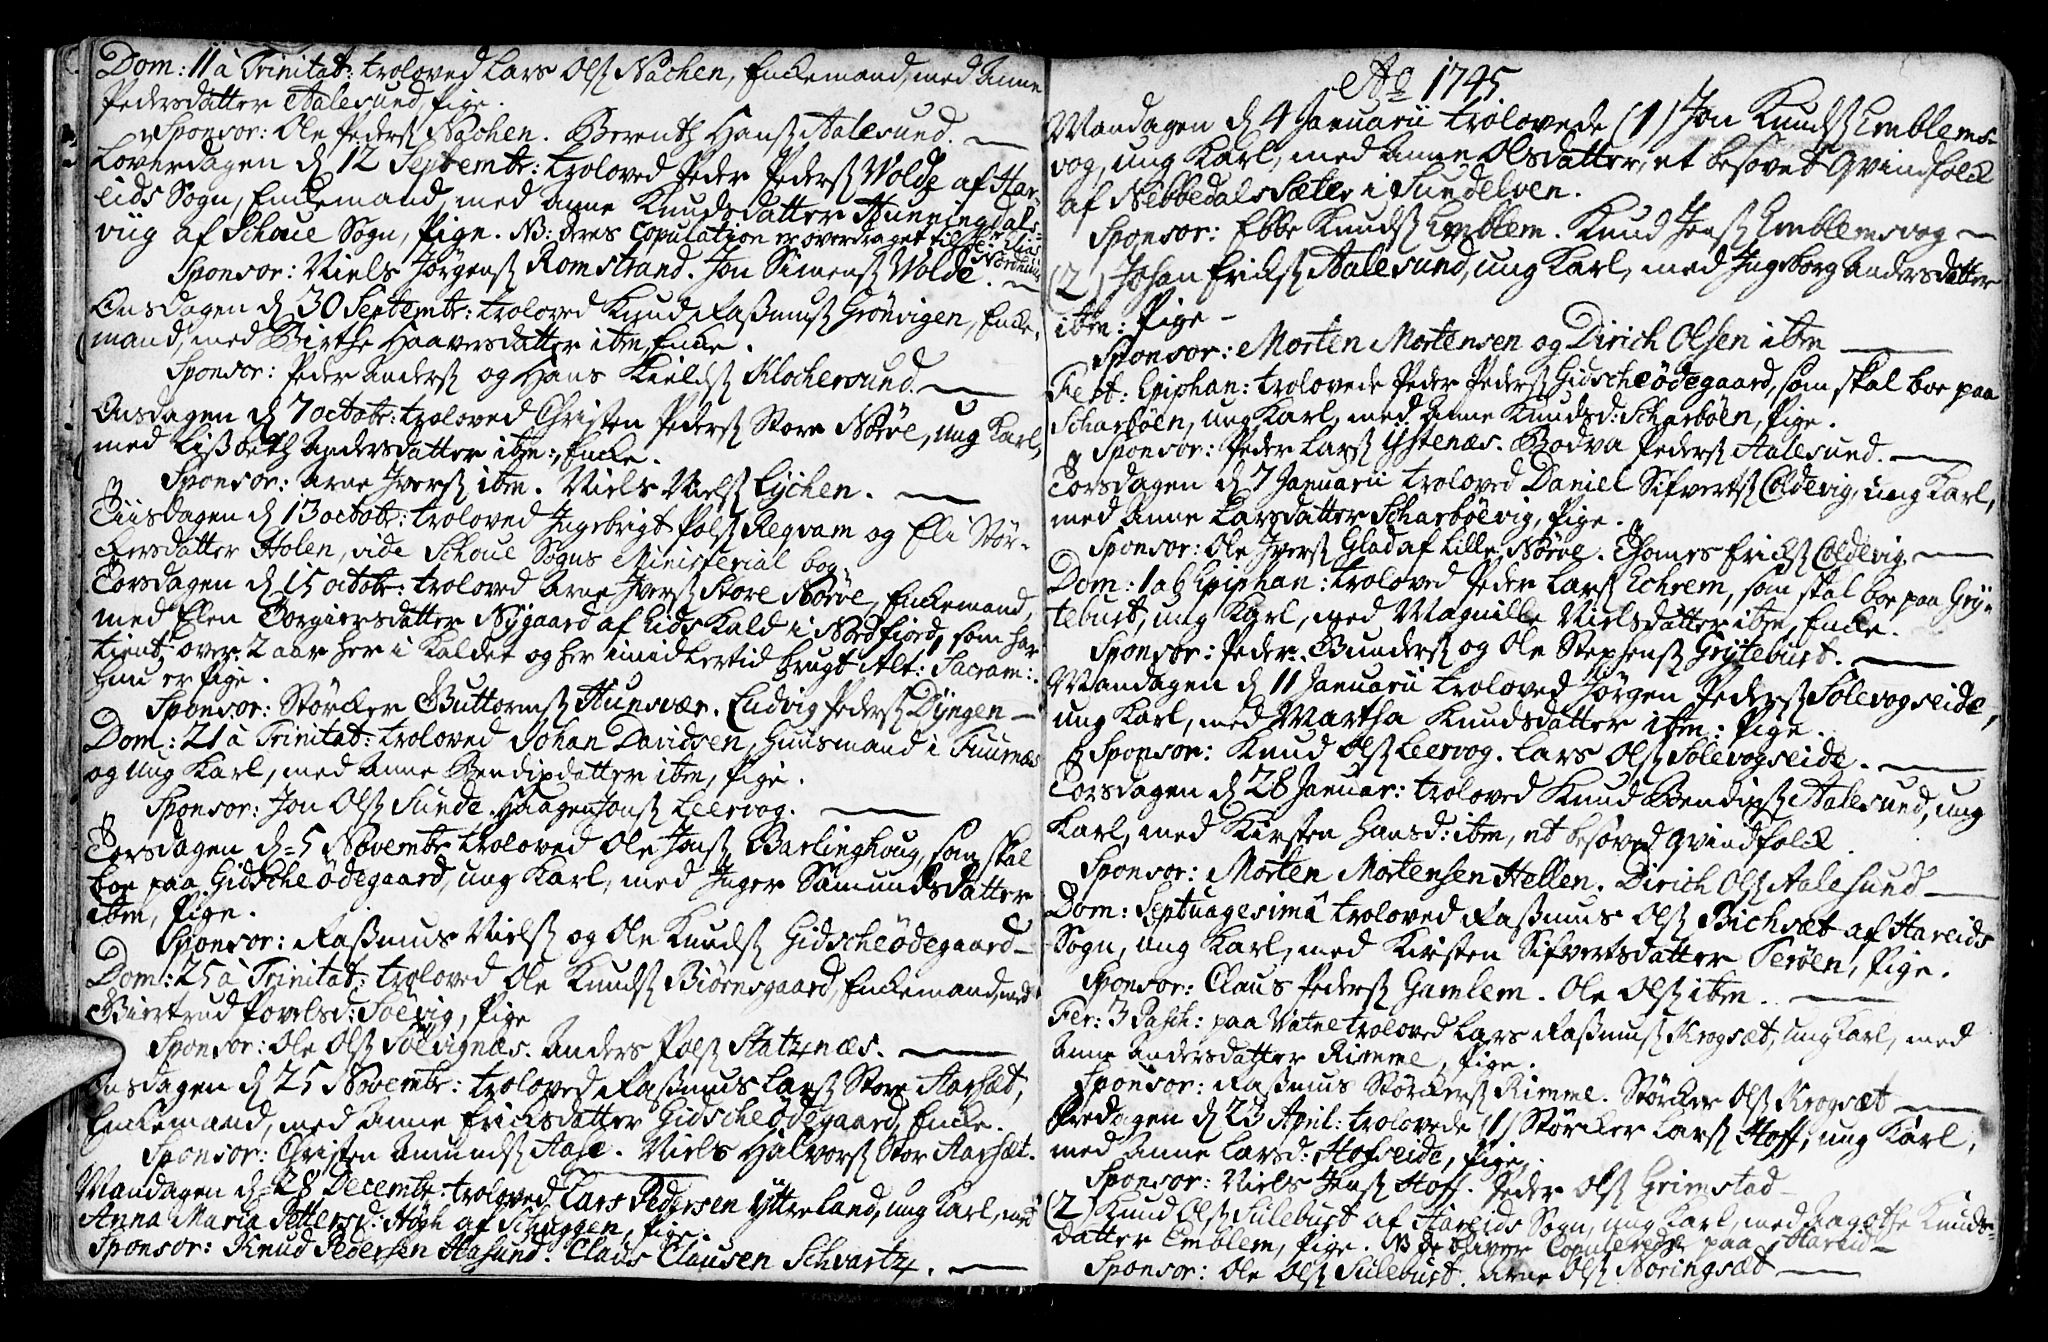 Dom: 11 à Trinitat: troloved Lars Olsß Nachen, Enckemand, med Anne
Pedersdatter Aalesund, Pige.
Sponsor: Ole Pedersß Nachen. Berentz Hansß Aalesund.
Loverdagen d 12 Septembr: troloved Peder Pedersß Wolde af Har-
eids Sogn, Enckemand, med Anne Knudsdatter Hunningdals-
viig af Schoue Sogn, Pige. NB: deres Copulation er overdraget til
Sponsor: Niels Jørgensß Romstrand. Jon Simensß Wolde.
Onsdagen d 30 Septembr: troloved Knud Raßmusß Grönvigen, Encke-
mand, med Birthe Haaversdatter ibm, Encke.
Sponsor: Peder Andersß og Hans Kieldsß Klochersund.
Onsdagen d 7 octobr: troloved Christen Pedersß Store Nörve, ung Karl,
med Lisbeth Andersdatter ibm:, Encke.
Sponsor: Arne Iversß ibm. Niels Nielsß Eychen.
Tiisdagen d 13 octobr: troloved Ingebrigt Polsß Reqvam og Eli Stör-
kersdatter Holen, vide Schoue Sogns Ministerial bog.
Torsdagen d 15 octobr: troloved Arne Iversß Store Nörve, Enckemand,
med Elen Torgiersdatter Nygaard af Eids Kald i Nordfjord, som har
tient over 2 aar her i Kaldet og her imidlertid brugt Alt: Sacram:.
Hun er Pige.
Sponsor: Störcker Guttormsß Hunsvær. Ludvig Pedersß Dyngen
Dom: 21 à Trinitat: troloved Johan Davidsen, Huusmand i Tuurnæs
og ung Karl, med Anne Bendixdatter ibm, Pige.
Sponsor: Jon Olsß Sunde. Haagen Jonsß Leervog.
Torsdagen d: 5 Novembr troloved Ole Jonsß Barlinghoug, som skal
boe paa Gidscheödegaard, ung Karl, med Inger Samundsdatter
ibm, Pige.
Sponsor: Raßmus Nielsß og Ole Knudsß Gidscheödegaard
Dom: 25 à Trinitat: troloved Ole Knudsß Biörnsgaard, Enckemand, med
Giertrud Povelsd: Soëvig, Pige
Sponsor: Ole Olsß Sölvignæs. Anders Polsß Slatznæs.
Onsdagen d 25 Novembr: troloved Raßmus Larsß Store Aarsæt,
Enckemand, med Anne Ericksdatter Gidscheödegaard, Encke.
Sponsor: Christen Amundsß Aase. Niels Halvorsß Stor Aarsæt.
Mandagen d: 28 Decembr: troloved Lars Pedersen Ytterland, ung Karl, med
Anna Maria Pettersd: Högh af Schuggen, Pige.
Sponsor: Knud Pedersen Hasund. Claus Clausen Schvartz.
Ao 1745
Mandagen d 4 Januarii trolovede (1) Jon Knudsß Emblems-
vog, ung Karl, med Anne Olsdatter, et besovet Qvindfolck
af Nebbedals Sæter i Sundelven.
Sponsor: Ebbe Knudsß Emblem. Knud Jensß Emblemsvog
(2) Johan Ericksß Aalesund, ung Karl, med Ingeborg Andersdatter
ibm: Pige
Sponsor: Morten Mortensen og Dirich Olsen ibm
Fest: Epiphan: trolovede Peder Pedersß Gidscheödegaard, som skal boe paa
Scharböen, ung Karl, med Anne Knudsd: Scharböen, Pige.
Sponsor: Peder Larsß Ystenæs. Bodva Pedersß Aalesund.
Torsdagen d 7 Januarii troloved Daniel Sifvertsß Coldevig, ung Karl,
med Anne Larsdatter Scharböevig, Pige.
Sponsor: Ole Iversß Glad af Lille Nörve. Thomes Ericksß Coldevig
Dom: 1 ab Epiphan: troloved Peder Larsß Echrem, som skal boe paa Gry-
tebust, ung Karl, med Magnille Nielsdatter ibm, Encke.
Sponsor: Peder Gundersß og Ole Stephensß Grytebust.
Mandagen d 11 Januarii troloved Jörgen Pedersß Solevogseide,
ung Karl, med Martha Knudsdatter ibm: Pige.
Sponsor: Knud Olsß Leervog. Lars Olsß Solevogseide.
Torsdagen d 28 Januar: troloved Knud Bendixsß Aalesund, ung
Karl, med Kirsten Hansd: ibm, et besoved Qvindfolck.
Sponsor: Morten Mortensen Hellen. Dirich Olsß Aalesund
Dom: Septuagesimâ troloved Raßmus Olsß Bichsæt af Hareids
Sogn, ung Karl, med Kirsten Sifvertsdatter Teröen, Pige.
Sponsor: Claus Pedersß Gamlem. Ole Olsß ibm.
Fer: 3 Pasch: paa Vatne troloved Lars Raßmusß Krogsæt, ung Karl, med
Anne Andersdatter Rimme, Pige.
Sponsor: Raßmus Störckersß Rimme. Störcker Olsß Krogsæt
Fredagen d 23 April: trolovede (1) Störcker Larsß Hoff, ung Karl,
med Anne Larsd: Hofseide, Pige.
Sponsor: Niels Jensß Hoff. Peder Olsß Grimstad
(2) Knud Olsß Sulebust af Hareids Sogn, ung Karl, med Aagothe Knuds-
datter Emblem, Pige. NB de bliver Copulerede paa Hareid
Sponsor: Ole Olsß Sulebust. Arne Olsß Noringsæt